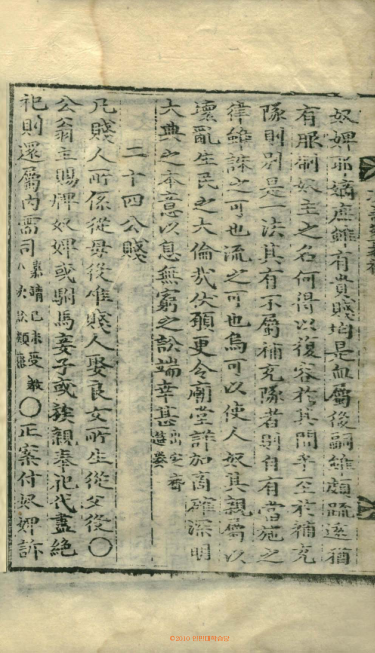 奴婢耶嫡庶雖有貴賤均是血屬後嗣雖頗疏遠猶
有服制奴主之名何得以復容於其間乎至於補充
隊則別是一法其有不屬補充隊者則自有當施之
律雖誅之可也流之可也烏可以使人奴其親屬以
壞亂生民之大倫哉伏願更令廟堂詳加商確深明
大典之本意以息無窮之訟端幸甚
二十四公賤
凡賤人所係從母役唯賤人娶良女所生從父役〇
公翁主賜牌奴婢或駙馬妾子或族親奉祀代盡絶
祀則還屬內需司〇正案付奴婢訴
©2010 한민대학學堂